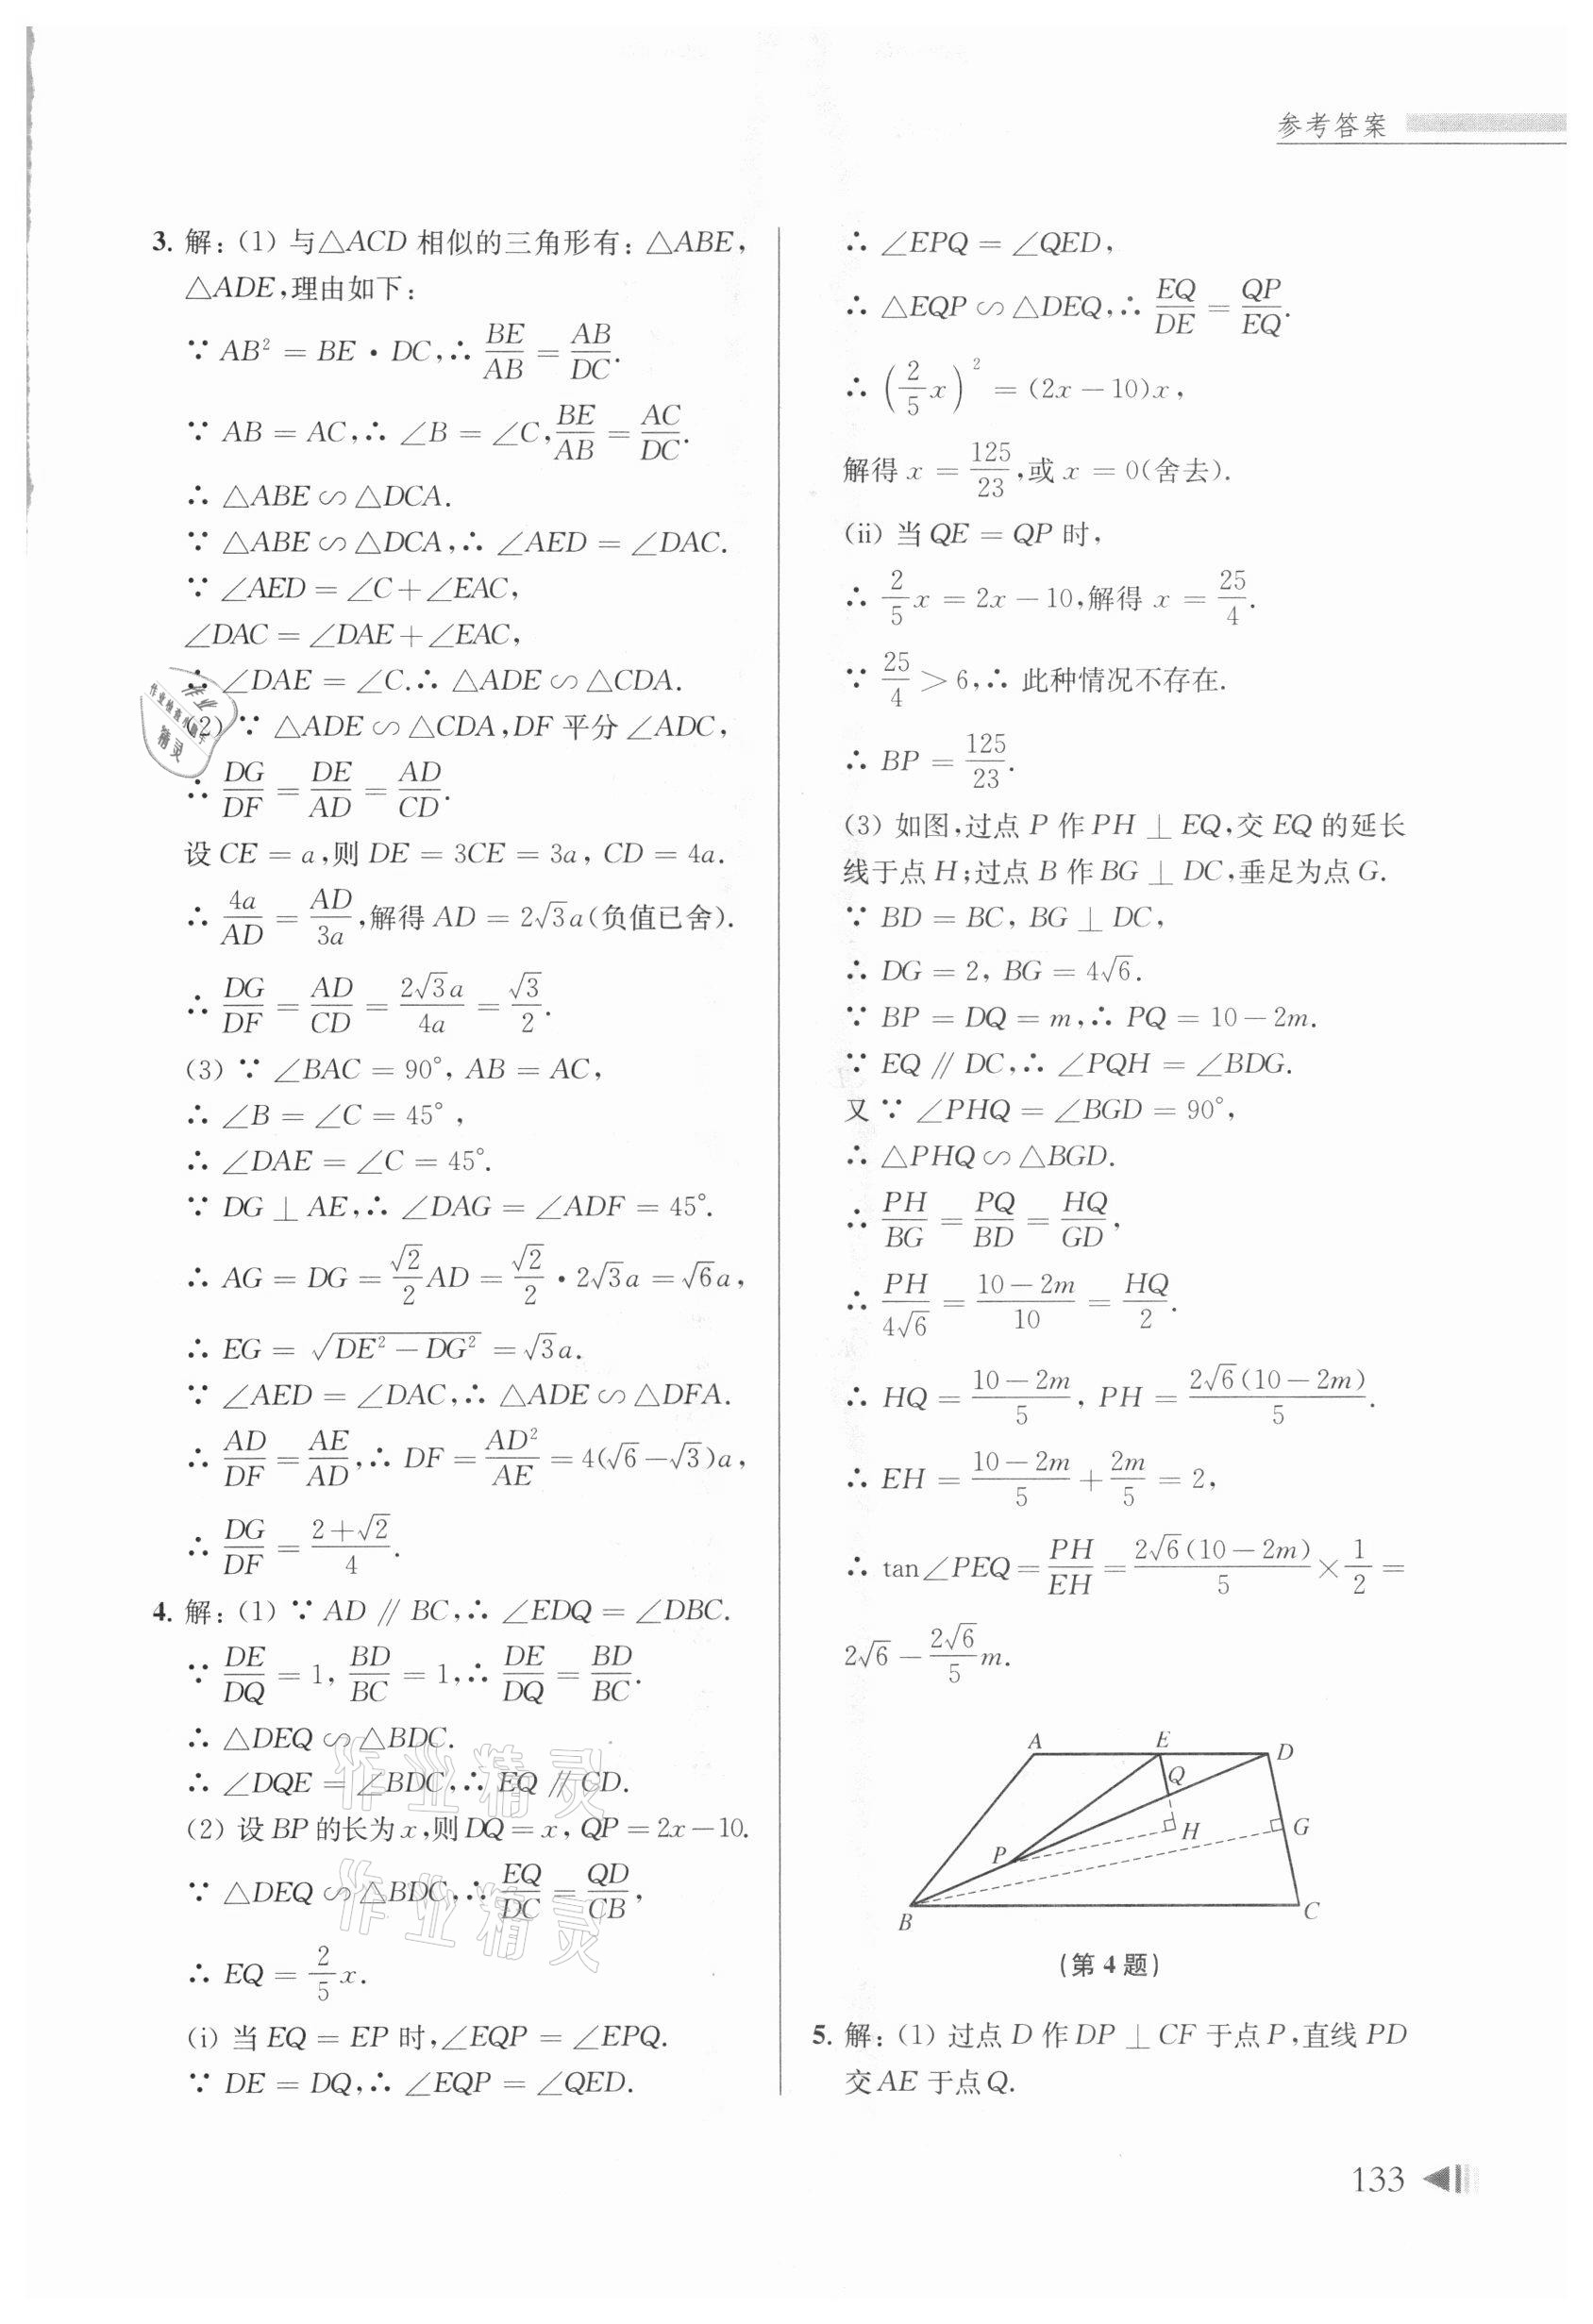 参考答案
3. 解：(1) 与△ACD 相似的三角形有：△ABE，
△ADE，理由如下：
∵ AB² = BE · DC，∴ BE/AB = AB/DC.
∵ AB = AC，∴ ∠B = ∠C，BE/AB = AC/DC.
∴ △ABE∽△DCA.
∵ △ABE∽△DCA，∴ ∠AED = ∠DAC.
∵ ∠AED = ∠C+∠EAC，
∠DAC = ∠DAE+∠EAC，
∴ ∠DAE = ∠C.∴ △ADE∽△CDA.
(2) ∵ △ADE∽△CDA，DF 平分∠ADC，
∴ DG/DF = DE/AD = AD/CD.
设 CE = a，则 DE = 3CE = 3a，CD = 4a.
∴ 4a/AD = AD/3a，解得 AD = 2√3a(负值已舍).
∴ DG/DF = AD/CD = 2√3a/4a = √3/2.
(3) ∵ ∠BAC = 90°，AB = AC，
∴ ∠B = ∠C = 45°，
∴ ∠DAE = ∠C = 45°.
∵ DG ⊥ AE，∴ ∠DAG = ∠ADF = 45°.
∴ AG = DG = √2/2 AD = √2/2 · 2√3a = √6a，
∴ EG = √(DE² − DG²) = √3a.
∵ ∠AED = ∠DAC，∴ △ADE∽△DFA.
∴ AD/DF = AE/AD，∴ DF = AD²/AE = 4(√6−√3)a，
∴ DG/DF = (2+√2)/4.
4. 解：(1) ∵ AD // BC，∴ ∠EDQ = ∠DBC.
∵ DE/DQ = 1，BD/BC = 1，∴ DE/DQ = BD/BC.
∴ △DEQ∽△BDC.
∴ ∠DQE = ∠BDC，∴ EQ // CD.
(2) 设 BP 的长为 x，则 DQ = x，QP = 2x−10.
∵ △DEQ∽△BDC，∴ EQ/DC = QD/CB，
∴ EQ = 2/5 x.
(i) 当 EQ = EP 时，∠EQP = ∠EPQ.
∵ DE = DQ，∴ ∠EQP = ∠QED.
∴ ∠EPQ = ∠QED，
∴ △EQP∽△DEQ，∴ EQ/DE = QP/EQ.
∴ (2/5 x)² = (2x−10)x，
解得 x = 125/23，或 x = 0(舍去).
(ii) 当 QE = QP 时，
∴ 2/5 x = 2x−10，解得 x = 25/4.
∵ 25/4 > 6，∴ 此种情况不存在.
∴ BP = 125/23.
(3) 如图，过点 P 作 PH ⊥ EQ，交 EQ 的延长
线于点 H；过点 B 作 BG ⊥ DC，垂足为点 G.
∵ BD = BC，BG ⊥ DC，
∴ DG = 2，BG = 4√6.
∵ BP = DQ = m，∴ PQ = 10−2m.
∵ EQ // DC，∴ ∠PQH = ∠BDG.
又 ∵ ∠PHQ = ∠BGD = 90°，
∴ △PHQ∽△BGD.
∴ PH/BG = PQ/BD = HQ/GD，
∴ PH/4√6 = (10−2m)/10 = HQ/2.
∴ HQ = (10−2m)/5，PH = 2√6(10−2m)/5.
∴ EH = (10−2m)/5 + 2m/5 = 2，
∴ tan∠PEQ = PH/EH = 2√6(10−2m)/5 × 1/2 =
2√6 − 2√6/5 m.
A
E
D
Q
H
G
P
B
C
(第 4 题)
5. 解：(1) 过点 D 作 DP ⊥ CF 于点 P，直线 PD
交 AE 于点 Q.
133
作业精灵
作业精灵